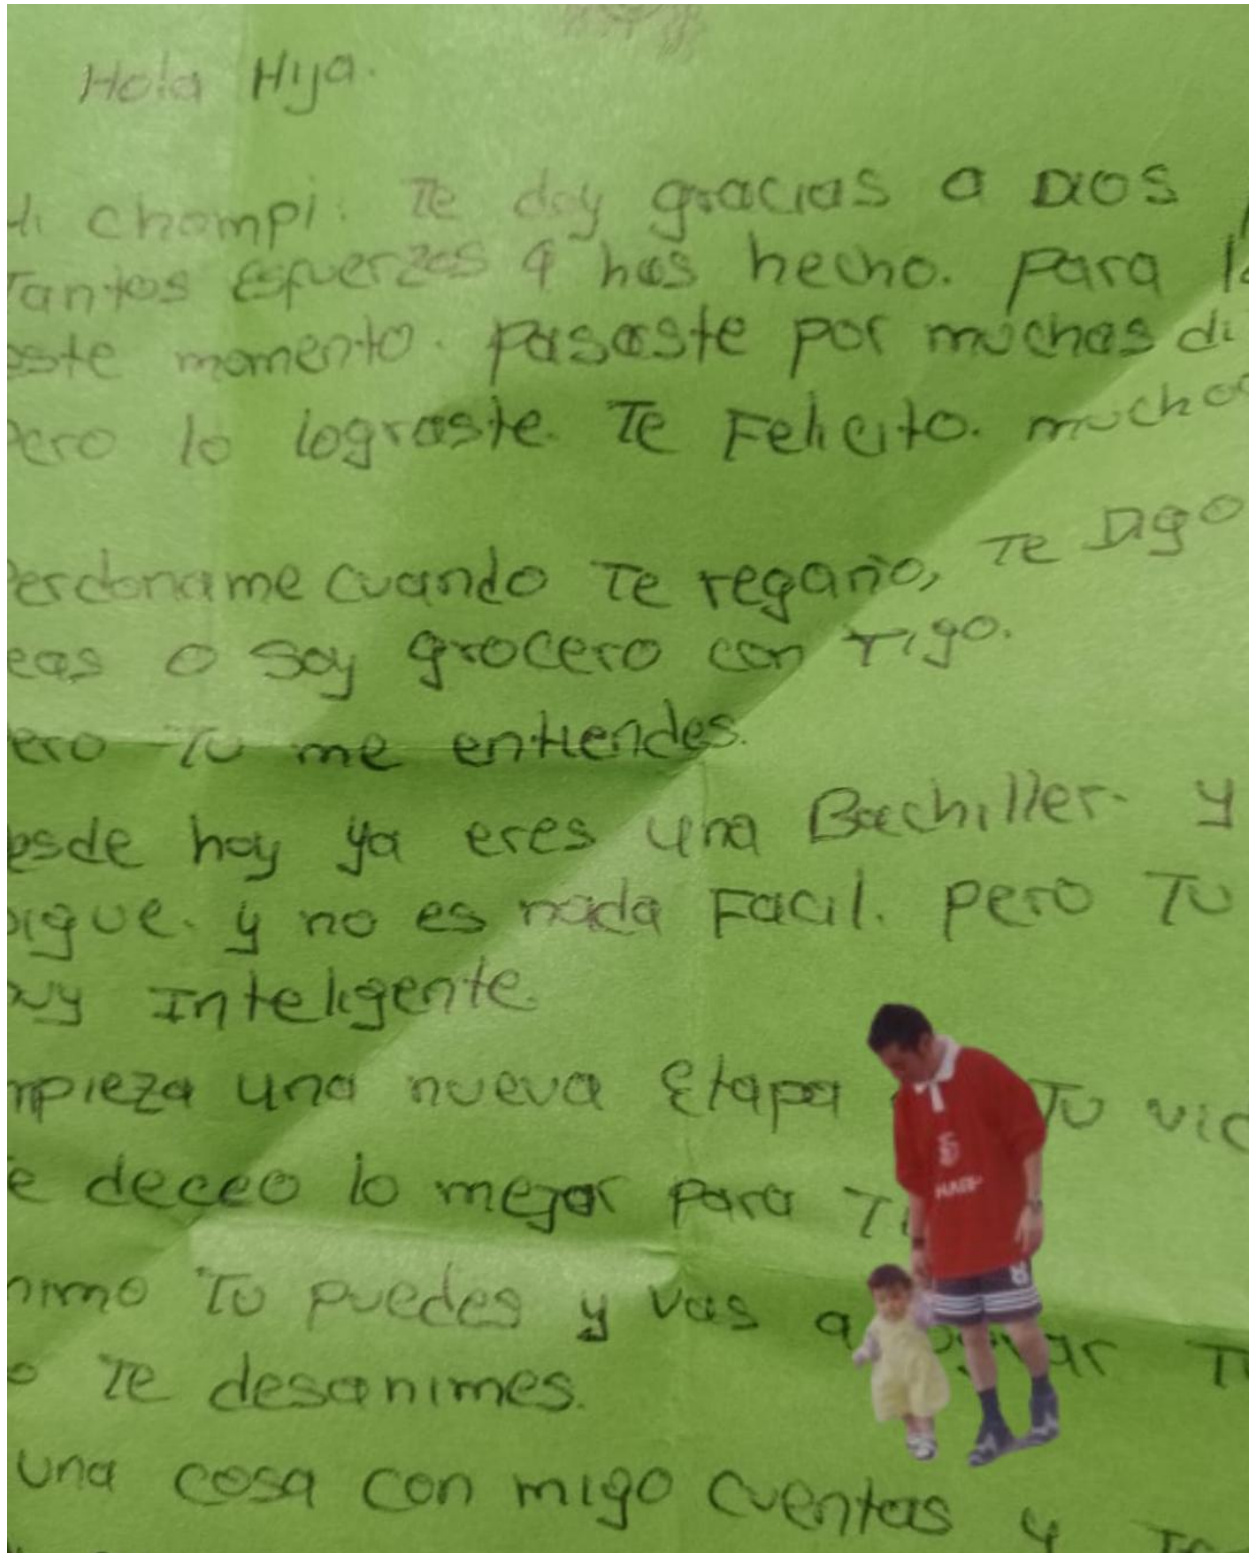 Hola Hija.
Mi chompi. Te doy gracias a DIOS
Tantos esfuerzos q has hecho. para
este momento. pasaste por muchas di
Pero lo lograste. Te Felicito. mucho
Perdoname cuando Te regaño, Te Digo
eas o soy grocero con Tigo.
ero Tu me entiendes.
esde hoy ya eres una Bachiller. y
sigue. y no es nada Facil. pero Tu
uy Inteligente
mpieza una nueva Etapa Tu vid
e deceo lo mejor para Ti
nimo Tu puedes y vas a T
o Te desanimes.
una cosa con migo cuentas y